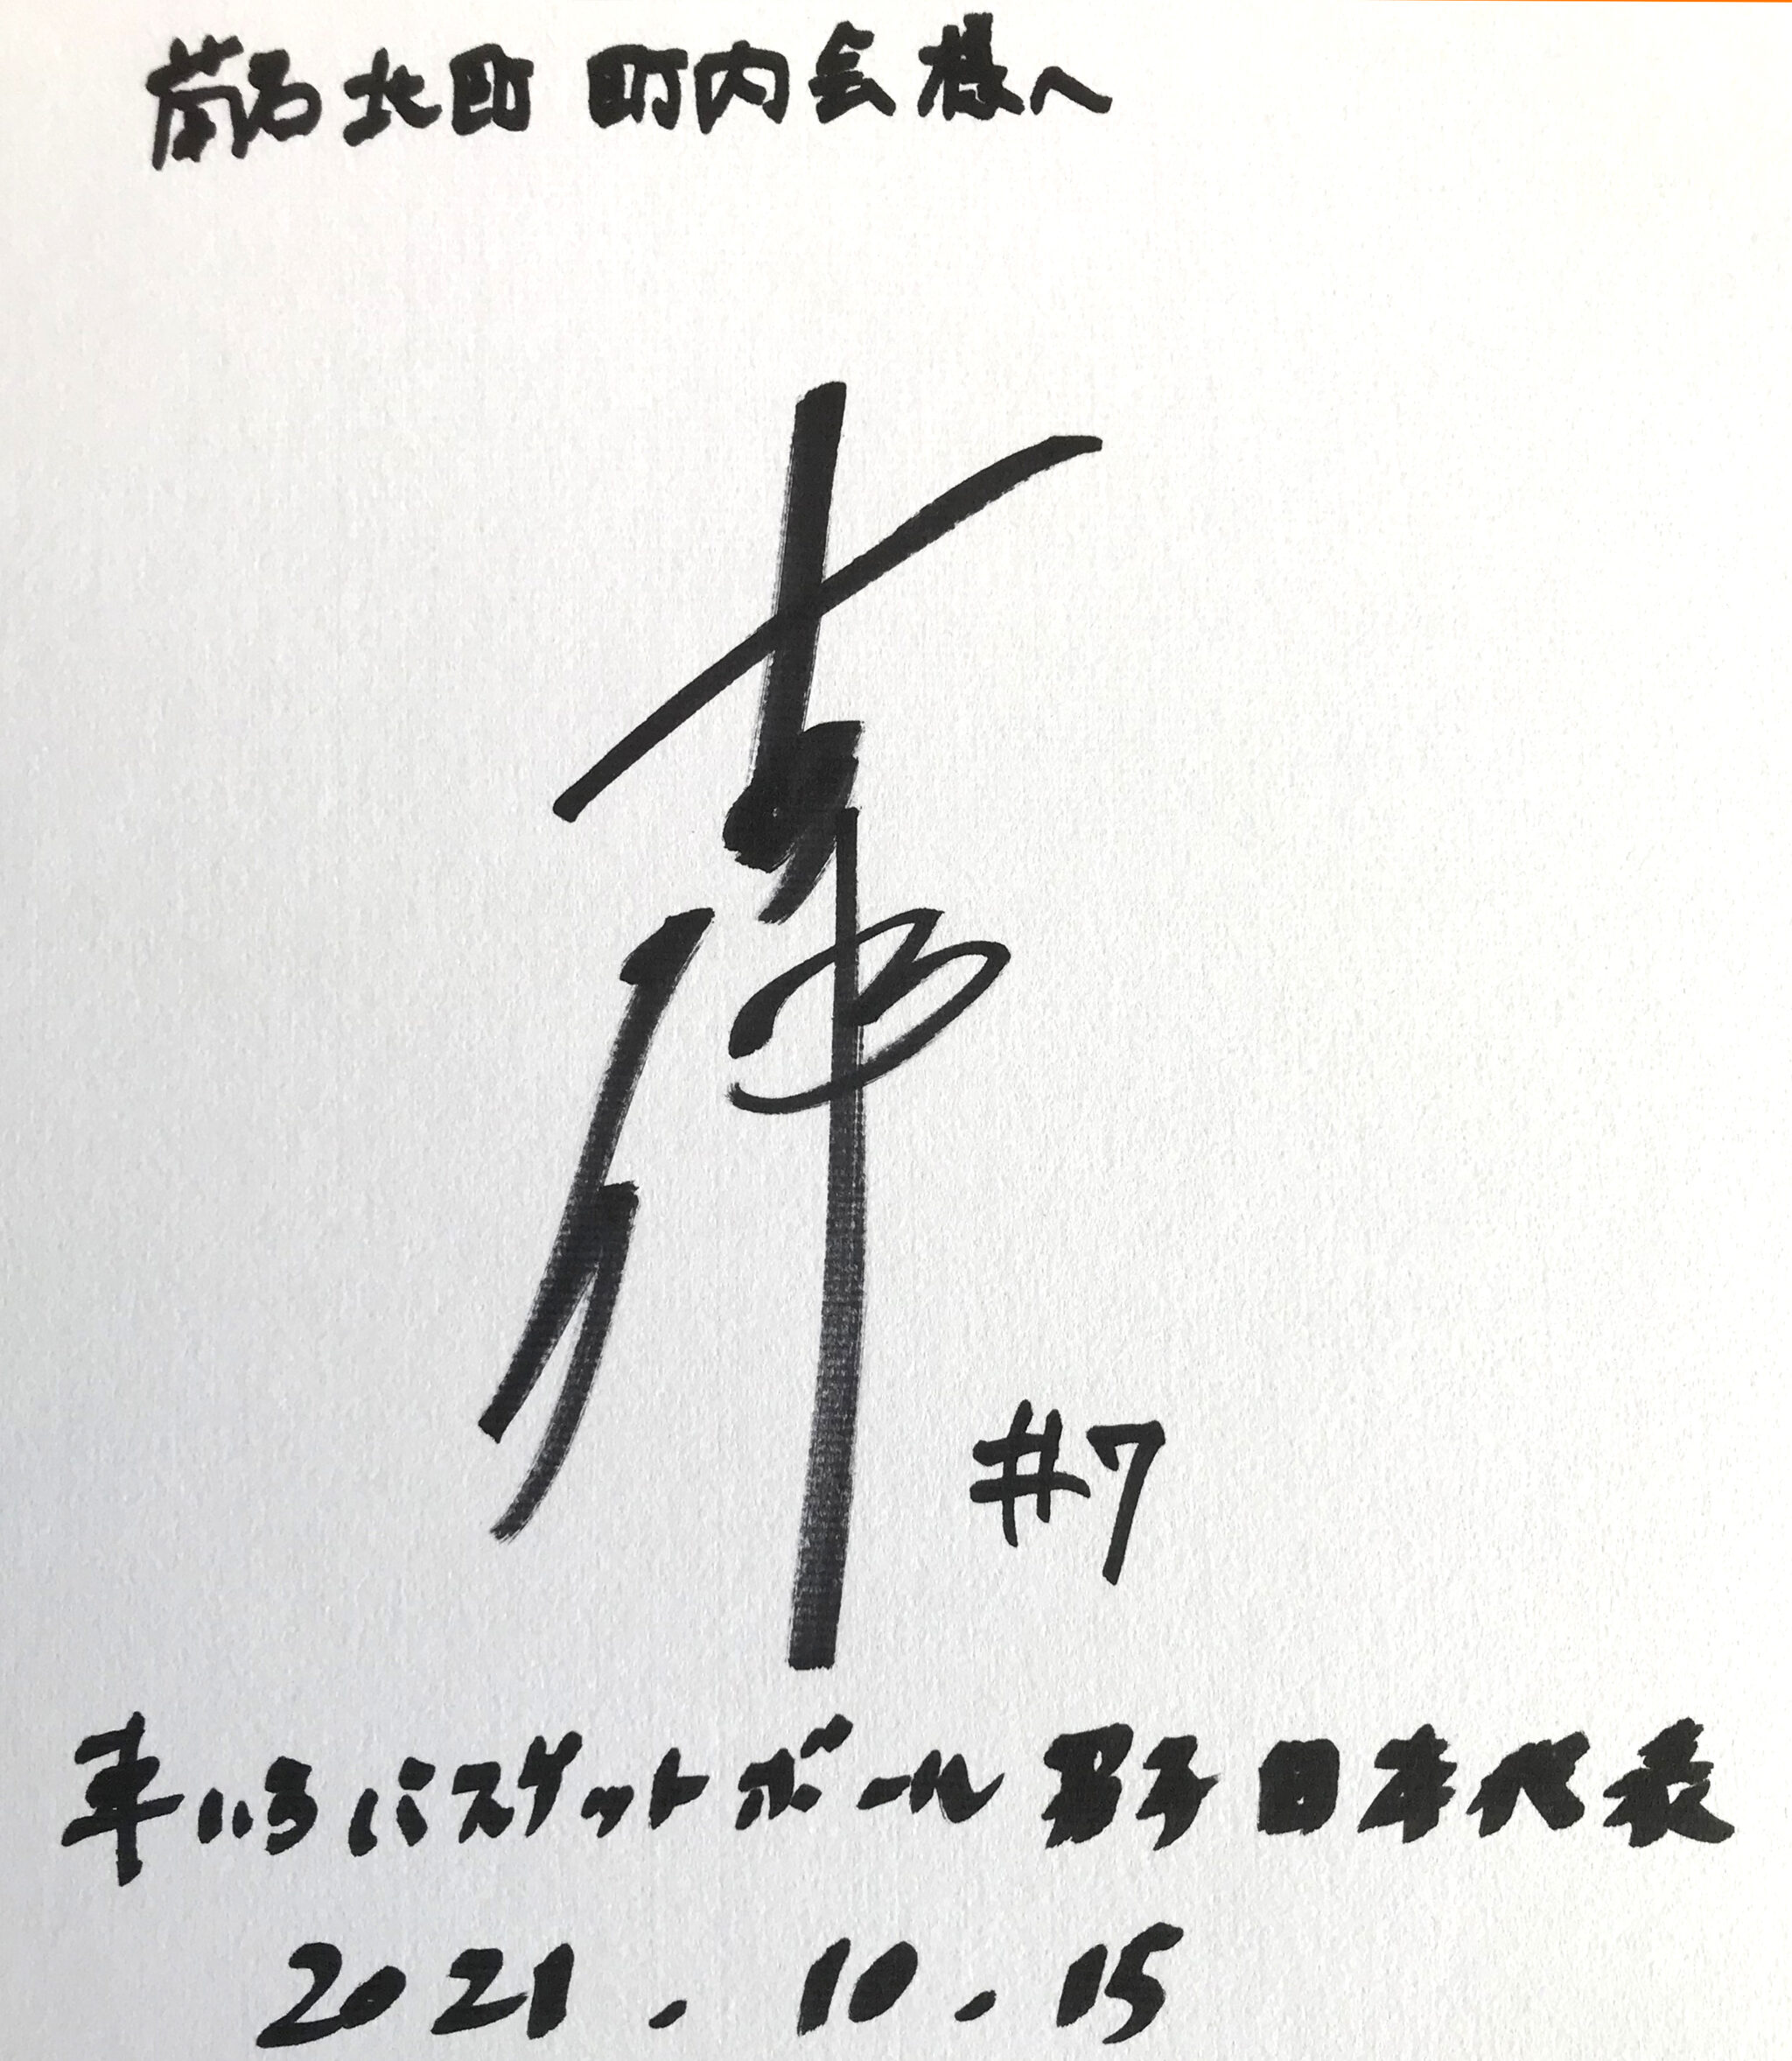 北町 町内会様へ
#7
車いすバスケットボール 男子日本代表
2021.10.15